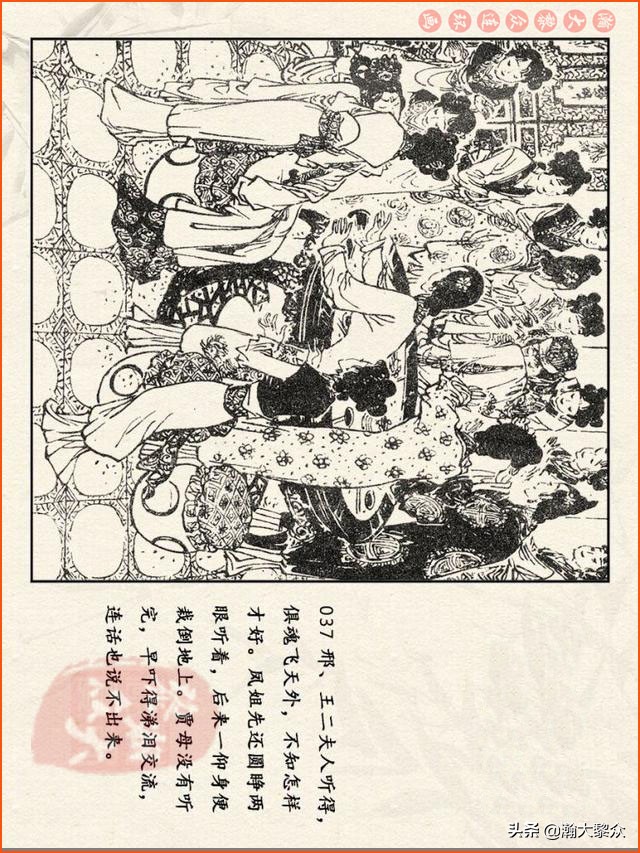 瀚大黎众连环画
037 邢、王二夫人听得，
俱魂飞天外，不知怎样
才好。凤姐先还圆睁两
眼听着，后来一仰身便
栽倒地上。贾母没有听
完，早吓得涕泪交流，
连话也说不出来。
头条 @瀚大黎众